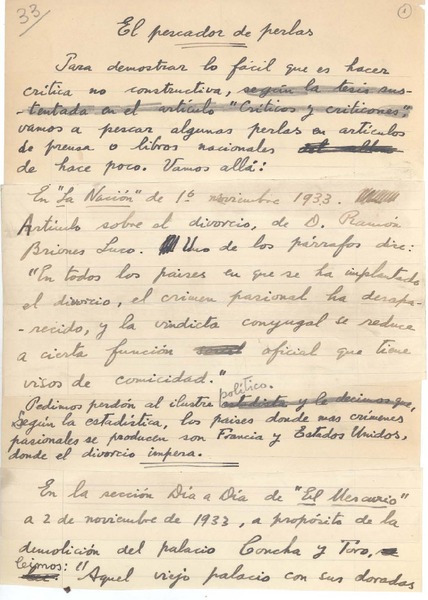 33
1
El pescador de perlas
Para demostrar lo fácil que es hacer
crítica no constructiva, según la tesis sus-
-tentada en el artículo "Críticos y criticones",
vamos a pescar algunas perlas en artículos
de prensa o libros nacionales
de hace poco. Vamos allá:
En "La Nación" de 1º noviembre 1933.
Artículo sobre el divorcio, de D. Ramón
Briones Luco. Uno de los párrafos dic:
"En todos los paises en que se ha implantado
el divorcio, el crimen pasional ha desapa-
-recido, y la vindicta conyugal se reduce
a cierta función oficial que tiene
visos de comicidad."
político.
Pedimos perdón al ilustre estadista y le decimos que,
Según la estadística, los paises donde mas crímenes
pasionales se producen son Francia y Estados Unidos,
donde el divorcio impera.
En la sección Día a Día de "El Mercurio"
a 2 de noviembre de 1933, a propósito de la
demolición del palacio Concha y Toro,
leimos: "Aquel viejo palacio con sus doradas